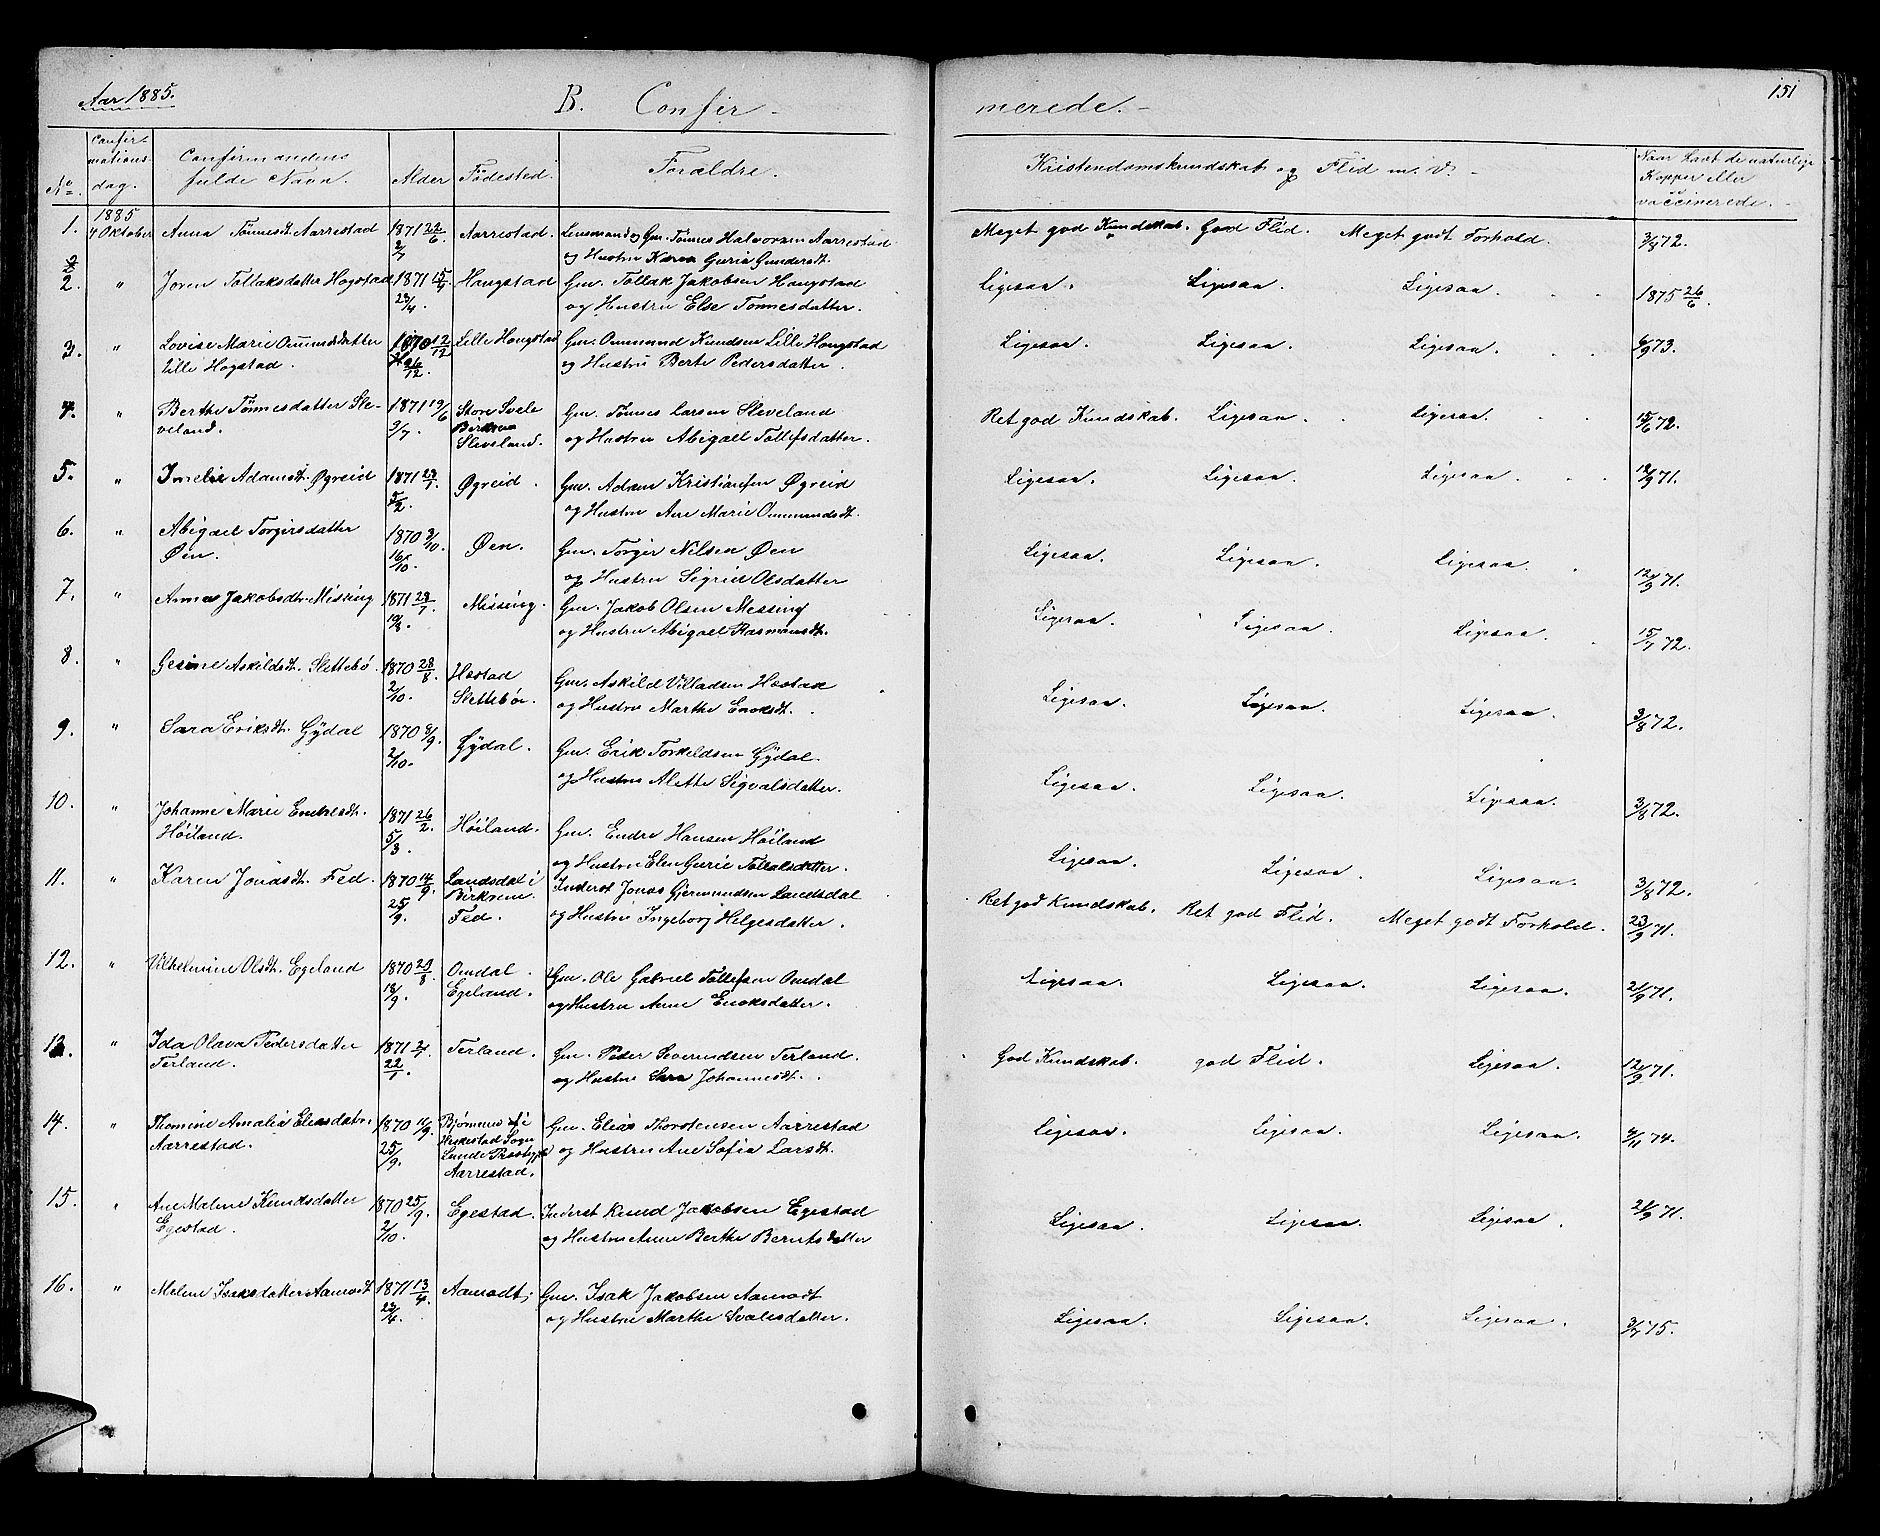 Aar 1885.
B. Confir-
merede.-
151
No.
Confir-
mations-
dag.
Confirmandens
fulde Navn.
Alder
Fødested.
Forældre.
Kristendomskundskab og Flid m. v.
Naar havt de naturlige
Kopper eller
vaccinerede.
1.
1885
4 Oktober
Anna Tønnesdt. Aarrestad
1871 22/6
2/7
Aarrestad.
Lensmand og Gm. Tønnes Halvorsen Aarrestad
og Hustru Karen Gurie Gundersdt.
Meget god Kundskab. God Flid. Meget godt Forhold.
3/8 72.
2.
"
Joren Tollaksdatter Hogstad
1871 15/4
23/4.
Haugstad
Gm. Tollak Jakobsen Haugstad
og Hustru Else Tønnesdatter.
Ligesaa. Ligesaa. Ligesaa.
1875 26/6.
3.
"
Lovise Marie Ommundsdatter
Lille Hogstad.
1870 12/12
26/12.
Lille Haugstad
Gm. Ommund Knudsen Lille Haugstad
og Hustru Berte Pedersdatter.
Ligesaa. Ligesaa. Ligesaa.
6/9 73.
4.
"
Berthe Tønnesdatter Sle-
veland.
1871 19/6
3/7.
Store Svele
Birkrem
Sleveland.
Gm. Tønnes Larsen Sleveland
og Hustru Abigael Tollefsdatter.
Ret god Kundskab. Ligesaa. Ligesaa.
15/6 72.
5.
"
Imelie Adamsdt. Øgreid
1871 23/1.
5/2.
Øgreid.
Gm. Adam Kristiansen Øgreid
og Hustru Ane Marie Ommundsdt.
Ligesaa. Ligesaa. Ligesaa.
12/9 71.
6.
"
Abigael Torgirsdatter
Øen.
1870 9/10.
16/10.
Øen.
Gm. Torgir Nilsen Øen
og Hustru Sigrid Olsdatter
Ligesaa. Ligesaa. Ligesaa.
12/9 71.
7.
"
Anna Jakobsdtr. Missing
1871 28/7.
19/8.
Missing.
Gm. Jakob Olsen Messing
og Hustru Abigael Rasmusdt.
Ligesaa. Ligesaa. Ligesaa.
15/7 72.
8.
"
Gesine Askildsdt. Slettebø.
1870 28/8.
2/10.
Hæstad
Slettebø.
Gm. Askild Villadsen Hæstad
og Hustru Marthe Enoksdt.
Ligesaa. Ligesaa. Ligesaa.
3/8 72.
9.
"
Sara Eriksdt. Gydal
1870 8/9.
2/10.
Gydal.
Gm. Erik Torkeldsen Gydal
og Hustru Alette Sigvalsdatter.
Ligesaa. Ligesaa. Ligesaa.
3/8 72.
10.
"
Johanne Marie Endresdt.
Høiland.
1871 26/2.
5/3.
Høiland.
Gm. Endre Hansen Høiland
og Hustru Elen Gurie Tollaksdatter.
Ligesaa. Ligesaa. Ligesaa.
3/8 72.
11.
"
Karen Jonasdt. Fed.
1870 14/9.
25/9.
Landsdal i
Birkrem.
Fed.
Inderst Jonas Gjermundsen Landsdal
og Hustru Ingeborg Helgesdatter.
Ret god Kundskab. Ret god Flid. Meget godt Forhold.
23/9 71.
12.
"
Vilhelmine Olsdt. Egeland
1870 29/8.
18/9.
Omdal.
Egeland.
Gm. Ole Gabriel Tollefsen Omdal
og Hustru Anne Enoksdatter.
Ligesaa. Ligesaa. Ligesaa.
21/9 71.
13.
"
Ida Olava Pedersdatter
Terland.
1871 2/1.
22/1.
Terland.
Gm. Peder Severindsen Terland.
og Hustru Sara Johannesdt.
God Kundskab. god Flid. Ligesaa.
12/9 71.
14.
"
Thomine Amalia Eliasdatter
Aarrestad.
1870 11/9.
25/9.
Heskestad Sogn
Lunde
Aarrestad.
Gm. Elias Thorstensen Aarrestad
og Hustru Ane Sofia Larsdt.
Ligesaa. Ligesaa. Ligesaa.
4/11 74.
15.
"
Ane Malene Knudsdatter
Egestad.
1870 25/9.
2/10.
Egestad.
Inderst Knud Jakobsen Egestad
og Hustru Anne Berthe Berntsdatter
Ligesaa. Ligesaa. Ligesaa.
21/9 71.
16.
"
Malene Isaksdatter Aamodt
1871 13/4.
23/4.
Aamodt.
Gm. Isak Jakobsen Aamodt
og Hustru Marthe Svalesdatter.
Ligesaa. Ligesaa. Ligesaa.
3/7 75.